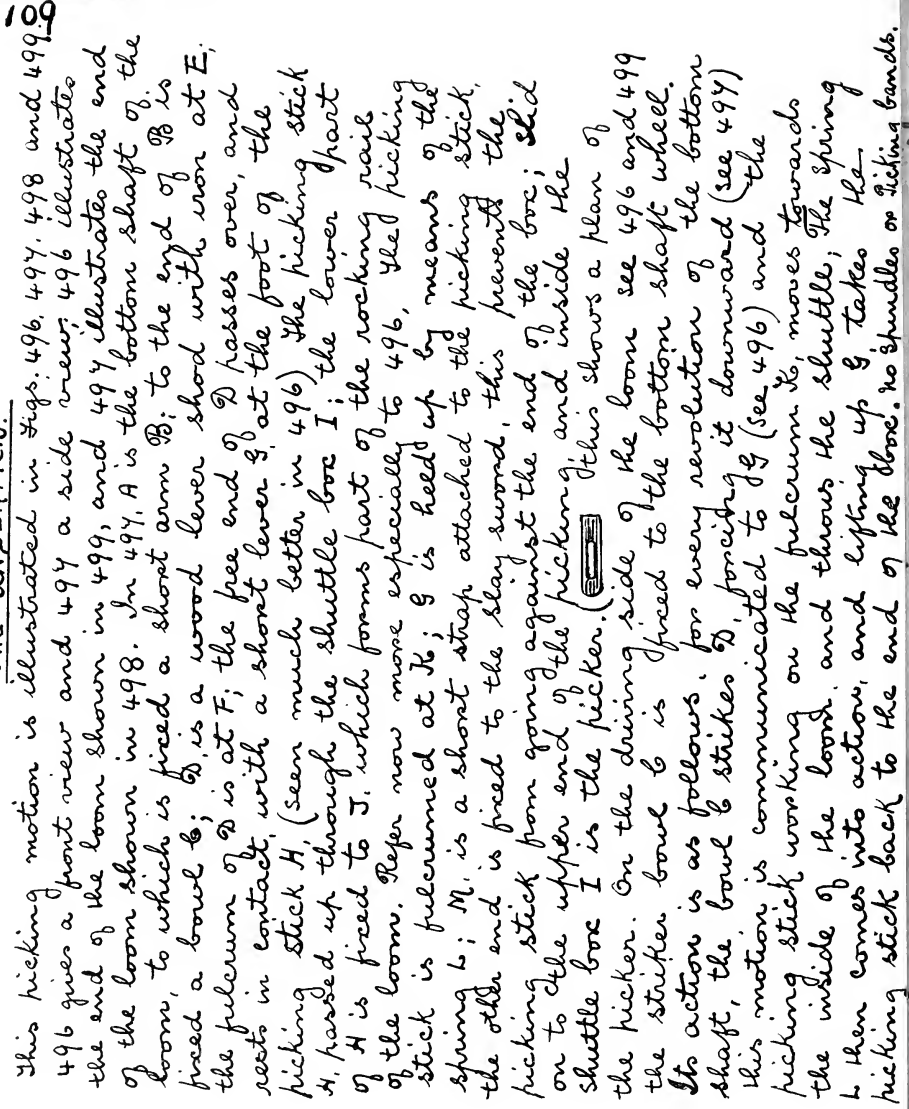 109
This picking motion is illustrated in Figs. 496. 497. 498 and 499.
496 gives a front view and 497 a side view. 496 illustrates
the end of the loom shown in 499, and 497 illustrates the end
of the loom shown in 498. In 497, A is the bottom shaft of the
loom, to which is fixed a short arm B; to the end of B is
fixed a bowl C; D, is a wood lever shod with iron at E;
the fulcrum of D is at F; the free end of D passes over, and
rests in contact, with a short lever G, at the foot of the
picking stick H, (seen much better in 496) The picking stick
H, passed up through the shuttle box I; the lower part
of H is fixed to J. which forms part of the rocking rail
of the loom. Refer now more especially to 496, The picking
stick is fulcrumed at K; G is held up by means of the
spring L; M, is a short strap attached to the picking stick,
the other end is fixed to the slay sword, this prevents the
picking stick from going against the end of the box; slid
on to the upper end of the picking and inside the
shuttle box I is the picker. ( this shows a plan of
the picker. On the driving side of the loom see 496 and 499
the striker bowl C is fixed to the bottom shaft wheel.
Its action is as follows. for every revolution of the bottom
shaft, the bowl C strikes D, forcing it downward (see 497)
this motion is communicated to G (see 496) and the
picking stick working on the fulcrum K, moves towards
the inside of the loom and throws the shuttle; The spring
L then comes into action, and lifting up G takes the
picking stick back to the end of the box. no spindles or picking bands.